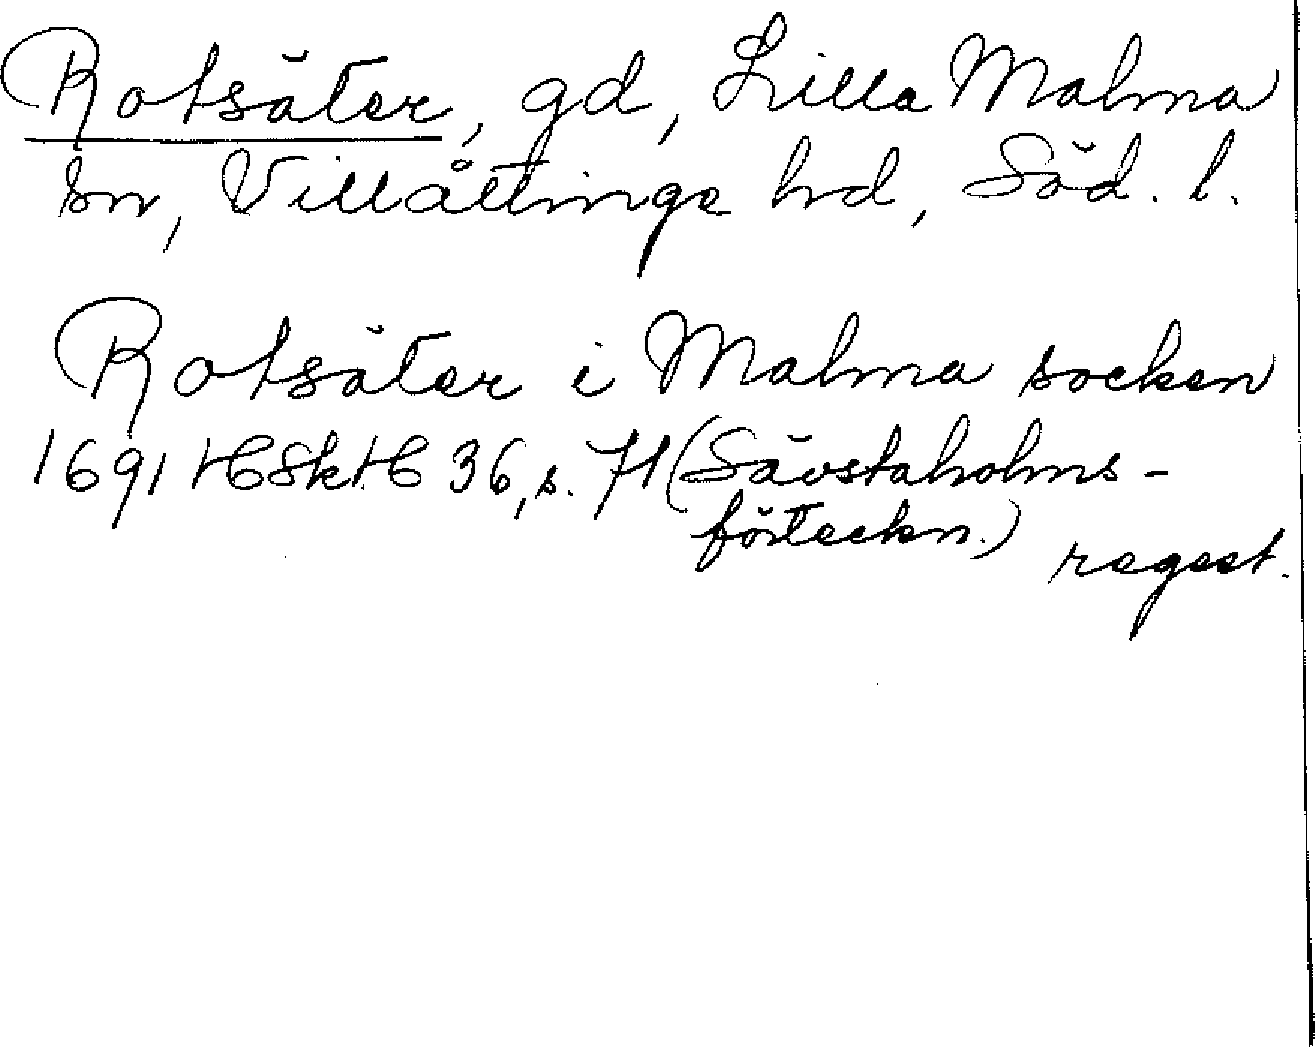 Rotsäter, gd, Lilla Malma
sn, Villåttinge hd, Söd. l.
Rotsäter i Malma socken
1691 HSkH 36, s. 71 (Sävstaholms-
förteckn.) regest.